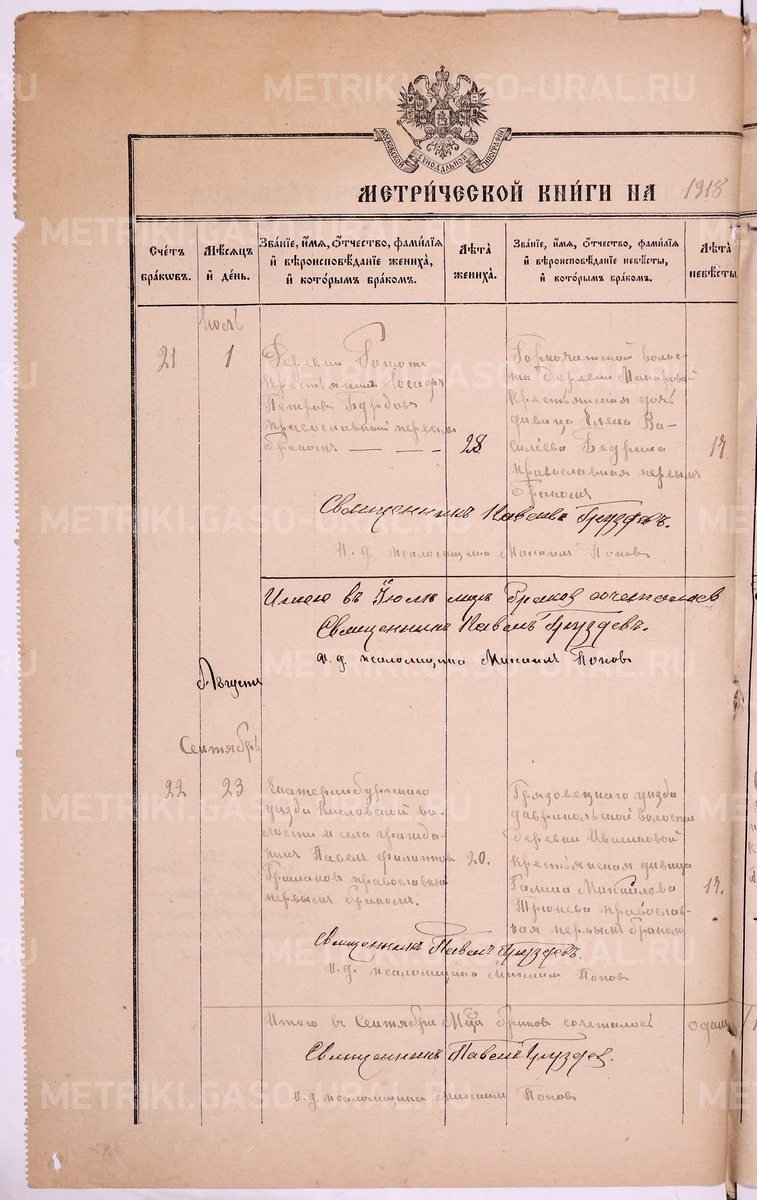 METRIKI.GASO-URAL.RU
МОСКОВСКОЙ СѴНОДАЛЬНОЙ ТИПОГРАФІИ
МЕТРИ́ЧЕСКОЙ КНИ́ГИ НА 1918
Счетъ бра́кѡвъ.
Мѣ́сяцъ и҆ де́нь.
Зва́нїе, и҆́мѧ, ѻ҆́тчество, фамилїѧ и҆ вѣроисповѣ́данїе жениха̀, и҆ кото́рымъ бра́комъ.
Лѣта̀ жениха̀.
Зва́нїе, и҆́мѧ, ѻ҆́тчество, фамилїѧ и҆ вѣроисповѣ́данїе невѣ́сты, и҆ кото́рымъ бра́комъ.
Лѣта̀ невѣ́сты.
Іюль
21
1
Деревни
крестьянинъ Іосифъ
Петровъ
православный первымъ
бракомъ
28
волос-
ти деревни Макаровой
крестьянская дочь
девица Елена Ва-
силіева
православная первымъ
бракомъ
17.
Священникъ Павелъ Груздевъ.
И. д. псаломщика Михаилъ Поповъ
Итого въ Іюлѣ мцѣ браковъ сочеталось
Священникъ Павелъ Груздевъ.
И. д. псаломщика Михаилъ Поповъ
Августъ
Сентябрь
22
23
Екатеринбургскаго
уезда Кисловской во-
лости и села гражда-
нинъ Павелъ Филиппов
православный
первымъ бракомъ.
20.
Грязовецкаго уезда
волости
деревни Ивашковой
крестьянская девица
Галина Михайлова
православ-
ная первымъ бракомъ
17.
Священникъ Павелъ Груздевъ.
И. д. псаломщика Михаилъ Поповъ
Итого въ Сентябрѣ Мцѣ браковъ сочеталось одинъ
Священникъ Павелъ Груздев.
И. д. псаломщика Михаилъ Поповъ